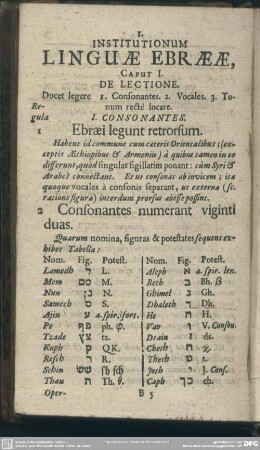 I.
INSTITUTIONUM
LINGUÆ EBRÆÆ,
CAPUT I.
DE LECTIONE.
Docet legere 1. Consonantes. 2. Vocales. 3. To-
num rectè locare.
Re-
gula
I. CONSONANTES.
1 Ebræi legunt retrorsum.
Habent id commune cum cæteris Orientalibus; (ex-
ceptis Æthiopibus & Armeniis) à quibus tamen in eo
differunt, quòd singulas sigillatim ponant: cùm Syri &
Arabes connectant. Et ut consonas ab invicem; ita
quoque vocales à consonis separant, ut externa (se-
ratione figura) interdum prorsus abesse possint.
2 Consonantes numerant viginti
duas.
Quarum nomina, figuras & potestates sequens ex-
hibet Tabella:
Nom. Fig. Potest. Nom. Fig. Potest.
Lamedh ל L. Aleph א a. spir. len.
Mem ם מ M. Beth ב Bh. ß
Nun ן נ N. Ghimel ג Gh.
Samech ס S. Dhaleth ד Dh.
Ajin ע a. spir. fort. He ה H.
Pe ף פ ph. φ. Vav ו V. Conson.
Tzade ץ צ tz. Drain ז ds.
Kuph ק QK. Cheth ח χ.
Resch ר R. Theth ט t.
Schin שׁ שׂ sh sch Jodh י J. Cons.
Thau ת Th. θ. Caph ך כ ch.
Oper- B 5